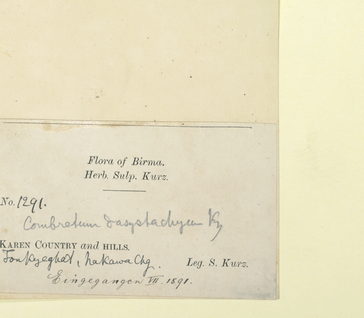 Flora of Birma.
Herb. Sulp. Kurz.
No. 1291.
Combretum dasystachyum Kz
KAREN COUNTRY and HILLS.
Tonkyeghat, Nakawa Chg.
Leg. S. Kurz.
Eingegangen VII. 1891.